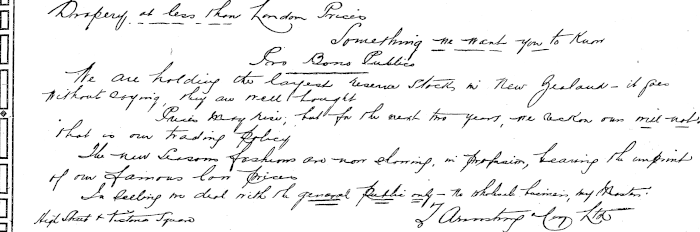 Drapery at less than London Prices
Something we want you to know
Pro Bono Publico
We are holding the largest reserve stocks in New Zealand - it goes
without saying, they are well bought
Prices may rise, but for the next two years, we reckon ours will not
that is our trading policy
The new Seasons fashions are now showing, in profusion, bearing the imprint
of our famous low prices
In selling we deal with the general public only - no wholesale business, my Masters.
High Street & Victoria Square
T Armstrong & Coy Ltd